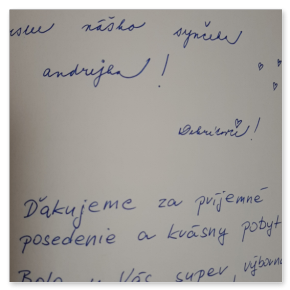 nášho synčeka
andrejka!
Ďakujeme za príjemné
posedenie a krásny pobyt
Bolo u Vás super, výborn